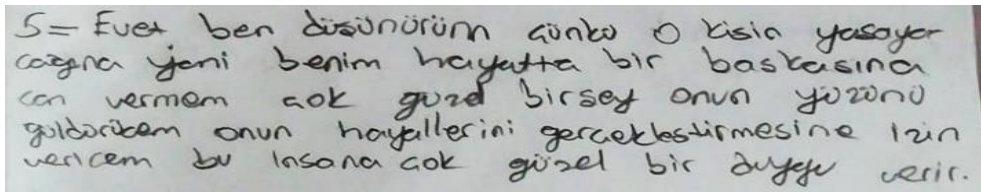 5= Evet ben düşünürüm çünkü o kisin yasayor
cagına yani benim hayatta bir baskasına
can vermem çok güzel birsey onun yüzünü
güldürücem onun hayallerini gerçeklestirmesine izin
vericem bu insana çok güzel bir duygu verir.